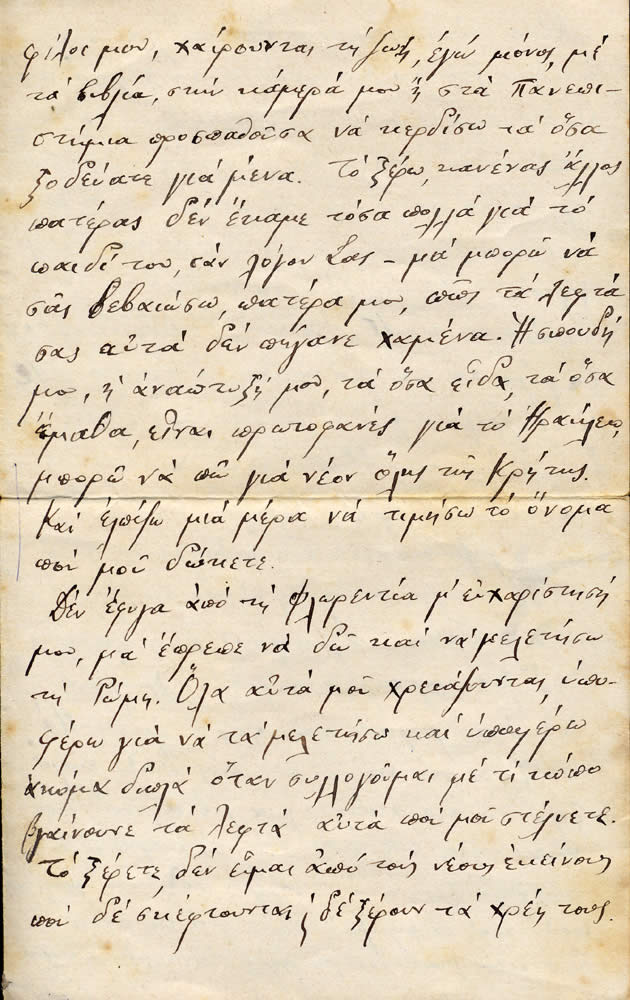 φίλοι μου, χαίρουνται τη ζωή, εγώ μόνος, μέ
τά βιβλία, στην κάμερά μου ή στά Πανεπι-
στήμια προσπαθούσα νά κερδίσω τά όσα
ξοδεύατε γιά μένα. Τό ξέρω, κανένας άλλος
πατέρας δέν έκαμε τόσα πολλά γιά τό
παιδί του, σάν λόγου Σας – μά μπορώ νά
σας βεβαιώσω, πατέρα μου, πως τά λεφτά
σας αυτά δέν πήγανε χαμένα. Η σπουδή
μου, η ανάπτυξή μου, τά όσα είδα, τά όσα
έμαθα, είναι πρωτοφανές γιά τό Ηράκλειο,
μπορώ νά πω γιά νέον όλης της Κρήτης.
Καί ελπίζω μιά μέρα νά τιμήσω τό όνομα
πού μού δώκετε.
Δέν έφυγα από τη Φλωρεντία μ' ευχαρίστησή
μου, μά έπρεπε νά δω καί νά μελετήσω
τη Ρώμη. Όλα αυτά μού χρειάζουνται, υπο-
φέρω γιά νά τά μελετήσω καί υποφέρω
ακόμα διπλά όταν συλλογούμαι μέ τί κόπο
βγαίνουνε τά λεφτά αυτά πού μού στέλνετε.
Τό ξέρετε δέν είμαι από τούς νέους εκείνους
πού δέ σκέφτουνται ή δέ ξέρουν τά χρέη τους.